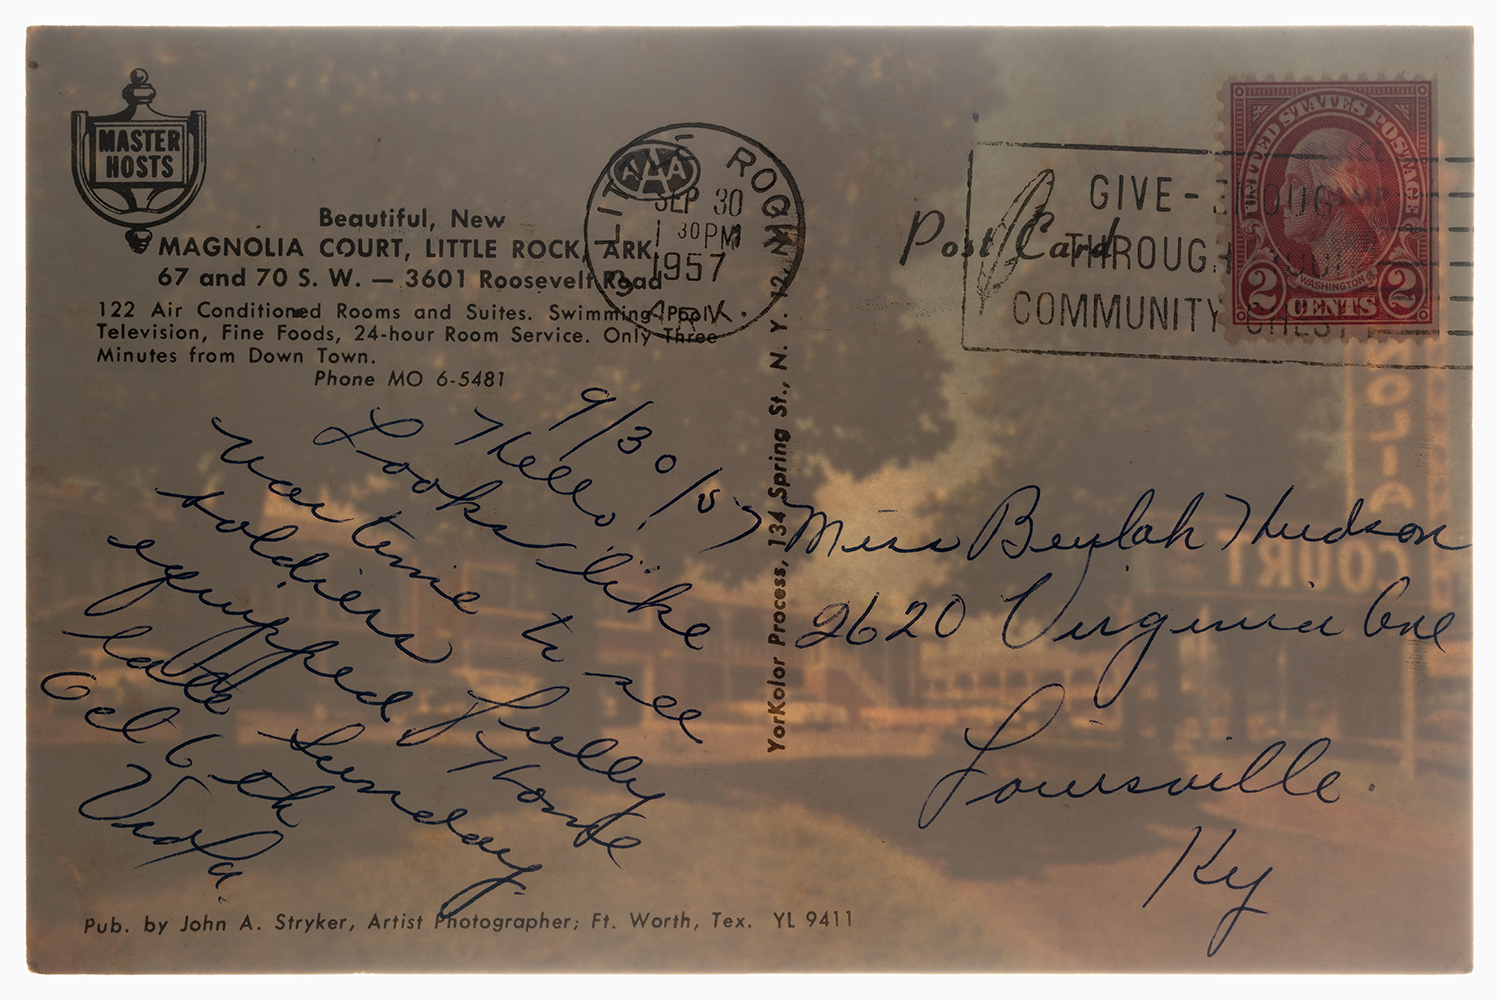 MASTER
HOSTS
Beautiful, New
MAGNOLIA COURT, LITTLE ROCK, ARK.
67 and 70 S. W. — 3601 Roosevelt Road
122 Air Conditioned Rooms and Suites. Swimming Pool,
Television, Fine Foods, 24-hour Room Service. Only Three
Minutes from Down Town.
Phone MO 6-5481
AAA
LITTLE ROCK
SEP 30
1 30 PM
1957
ARK.
9/30/57
Hello,
Looks like
war time to see
soldiers fully
equipped Home
late Sunday.
Oct 6th
Viola.
Pub. by John A. Stryker, Artist Photographer; Ft. Worth, Tex. YL 9411
YorKolor Process, 134 Spring St., N. Y. 12, N.
Post Card
GIVE-ENOUGH
THROUGH YOUR
COMMUNITY CHEST
UNITED STATES POSTAGE
WASHINGTON
2 CENTS 2
Miss Beulah Hudson
2620 Virginia Ave
Louisville.
Ky
NOLIA
COURT